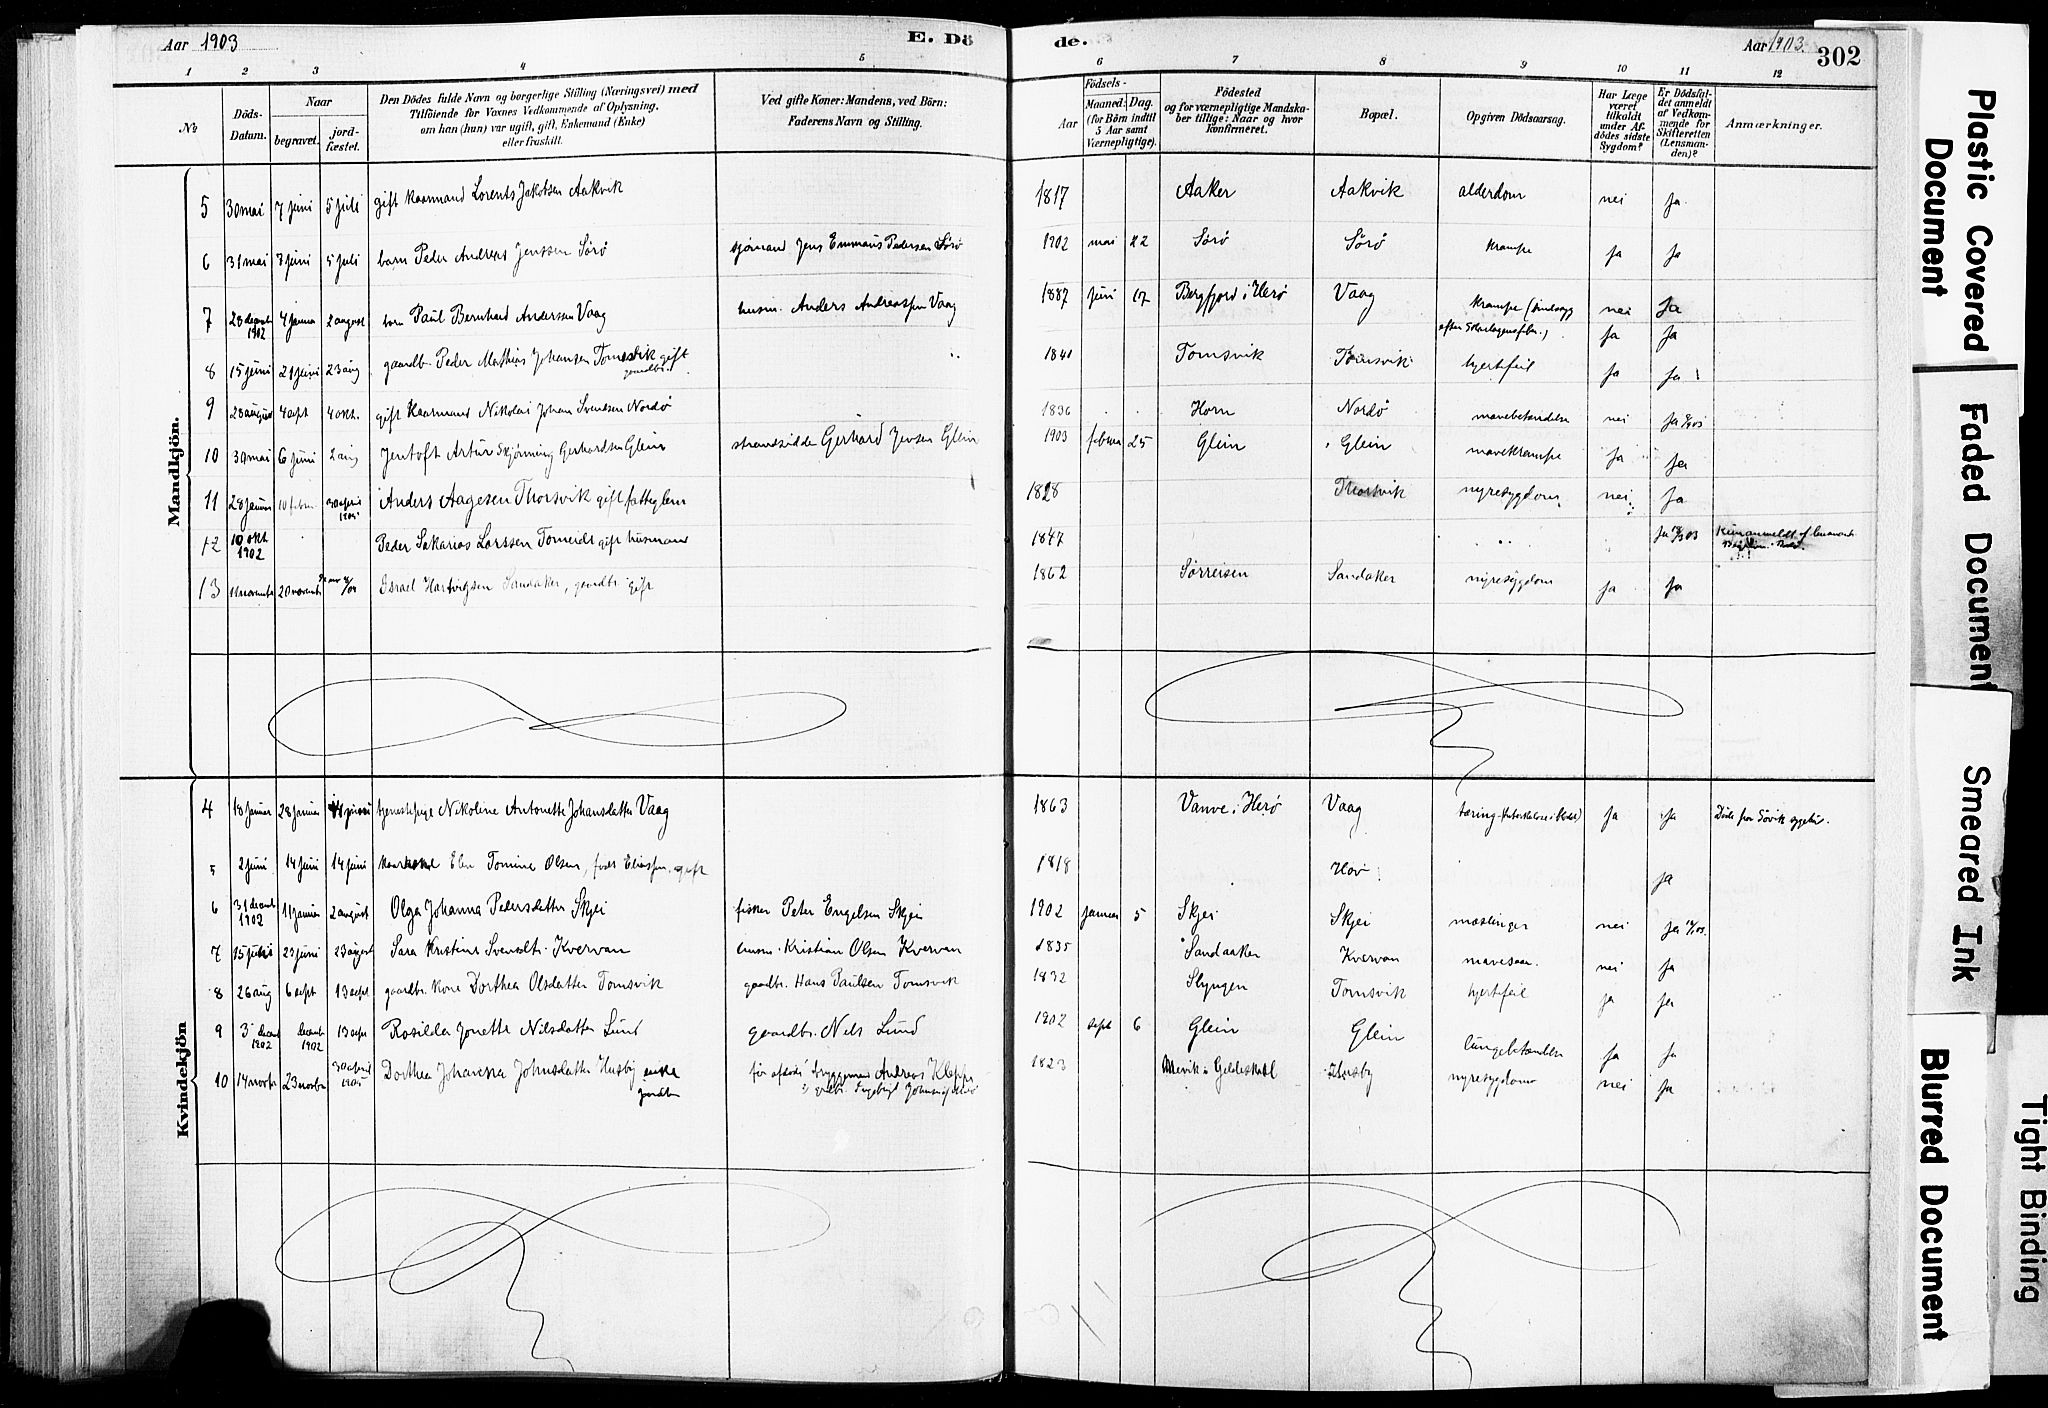 Aar 1903
E. Dö
de.
Aar 1903.
302
1 2 3 4 5 6 7 8 9 10 11 12
No
Döds-
Datum.
Naar
begravet.
jord-
fæstet.
Den Dödes fulde Navn og borgerlige Stilling (Næringsvei) med
Tilföiende for Voxnes Vedkommende af Oplysning,
om han (hun) var ugift, gift, Enkemand (Enke)
eller fraskilt.
Ved gifte Koner: Mandens, ved Börn:
Faderens Navn og Stilling.
Födsels-
Aar
Maaned: Dag.
(for Börn indtil
5 Aar samt
Værnepligtige).
Födested
og for værnepligtige Mandska-
ber tillige: Naar og hvor
Konfirmeret.
Bopæl.
Opgiven Dödsaarsag.
Har Læge
været
tilkaldt
under Af-
dödes sidste
Sygdom?
Er Dödsfal-
det anmeldt
af Vedkom-
mende for
Skifteretten
(Lensman-
den)?
Anmærkninger.
Mandkjön.
5 30 mai 7 juni 5 juli gift kaarmand Lorents Jakobsen Aakvik 1817 Aaker Aakvik alderdom nei ja
6 31 mai 7 juni 5 juli barn Peder Andreas Jenssen Sörö sjömand Jens Emmaus Pedersen Sörö 1902 mai 22 Sörö Sörö krampe ja ja
7 28 decemb 1902 4 januar 2 august barn Paul Bernhard Anderssen Vaag husm. Anders Andreassen Vaag 1887 juni 17 Bergfjord i Herö Vaag krampe nei ja
ja ja
8 15 juni 21 juni 23 aug gaardb. Peder Mathias Johansen Tomsvik gift
gaardbr. 1841 Tomsvik Tomsvik hjertefeil ja ja
9 28 august 4 sept 4 okt. gift kaarmand Nikolai Johan Svendsen Nordö 1836 Horn Nordö mavebetændelse nei ja
10 30 mai 6 juni 2 aug Jentoft Artur Skjörming Gerhardsen Glein strandsidder Gerhard Jensen Glein 1903 februar 25 Glein Glein mavekrampe ja ja
11 28 januar 10 febru 30 april Anders Aagesen Thorsvik gift fattiglem 1828 Thorsvik nyresygdom nei ja
12 10 okt 1902 Peder Sakarias Larssen Tomeide gift husmand 1847 ja
13 11 novemb 20 novemb Israel Hartvigsen Sandaker, gaardbr. gift 1862 Sörreisen Sandaker nyresygdom ja ja
Kvindekjön
4 18 januar 28 januar 14 juni tjenestepige Nikoline Antonette Johansdatter Vaag 1863 Vanve i Herö Vaag tæring ja ja Döde paa Sövik sygehus.
5 2 juni 14 juni 14 juni Elen Tomine Olsen, föd Eliassen. gift 1818 Hov ja
6 31 decemb 1902 11 januar 2 august Olga Johanna Pedersdatter Skjei fisker Peter Engelsen Skjei 1902 januar 5 Skjei Skjei mæslinger nei ja
7 15 juni 23 juni 23 august Sara Kristine Svensdt. Kvervan husm. Kristian Olsen Kvervan 1835 Sandaaker Kvervan mavesaar. nei ja
8 26 aug 6 sept 13 sept gaardbr. kone Dorthea Olsdatter Tomsvik gaardbr. Hans Paulsen Tomsvik 1832 Slyngen Tomsvik hjertefeil ja ja
9 3 decemb 1902 decemb 1902 13 sept Rosilda Jonette Nilsdatter Lund gaardbr. Nils Lund 1902 sept 6 Glein Glein lungebetændelse ja ja
10 14 novbr 23 novbr 30 april Dorthea Johanna Johnsdatter Husby enke
gaardbr. för afdöd bryggemand Andreas Klepp 1823 Mevik i Gildeskaal Husby nyresygdom nei ja
Plastic Covered
Document
Faded Document
Smeared Ink
Blurred Document
Tight Binding